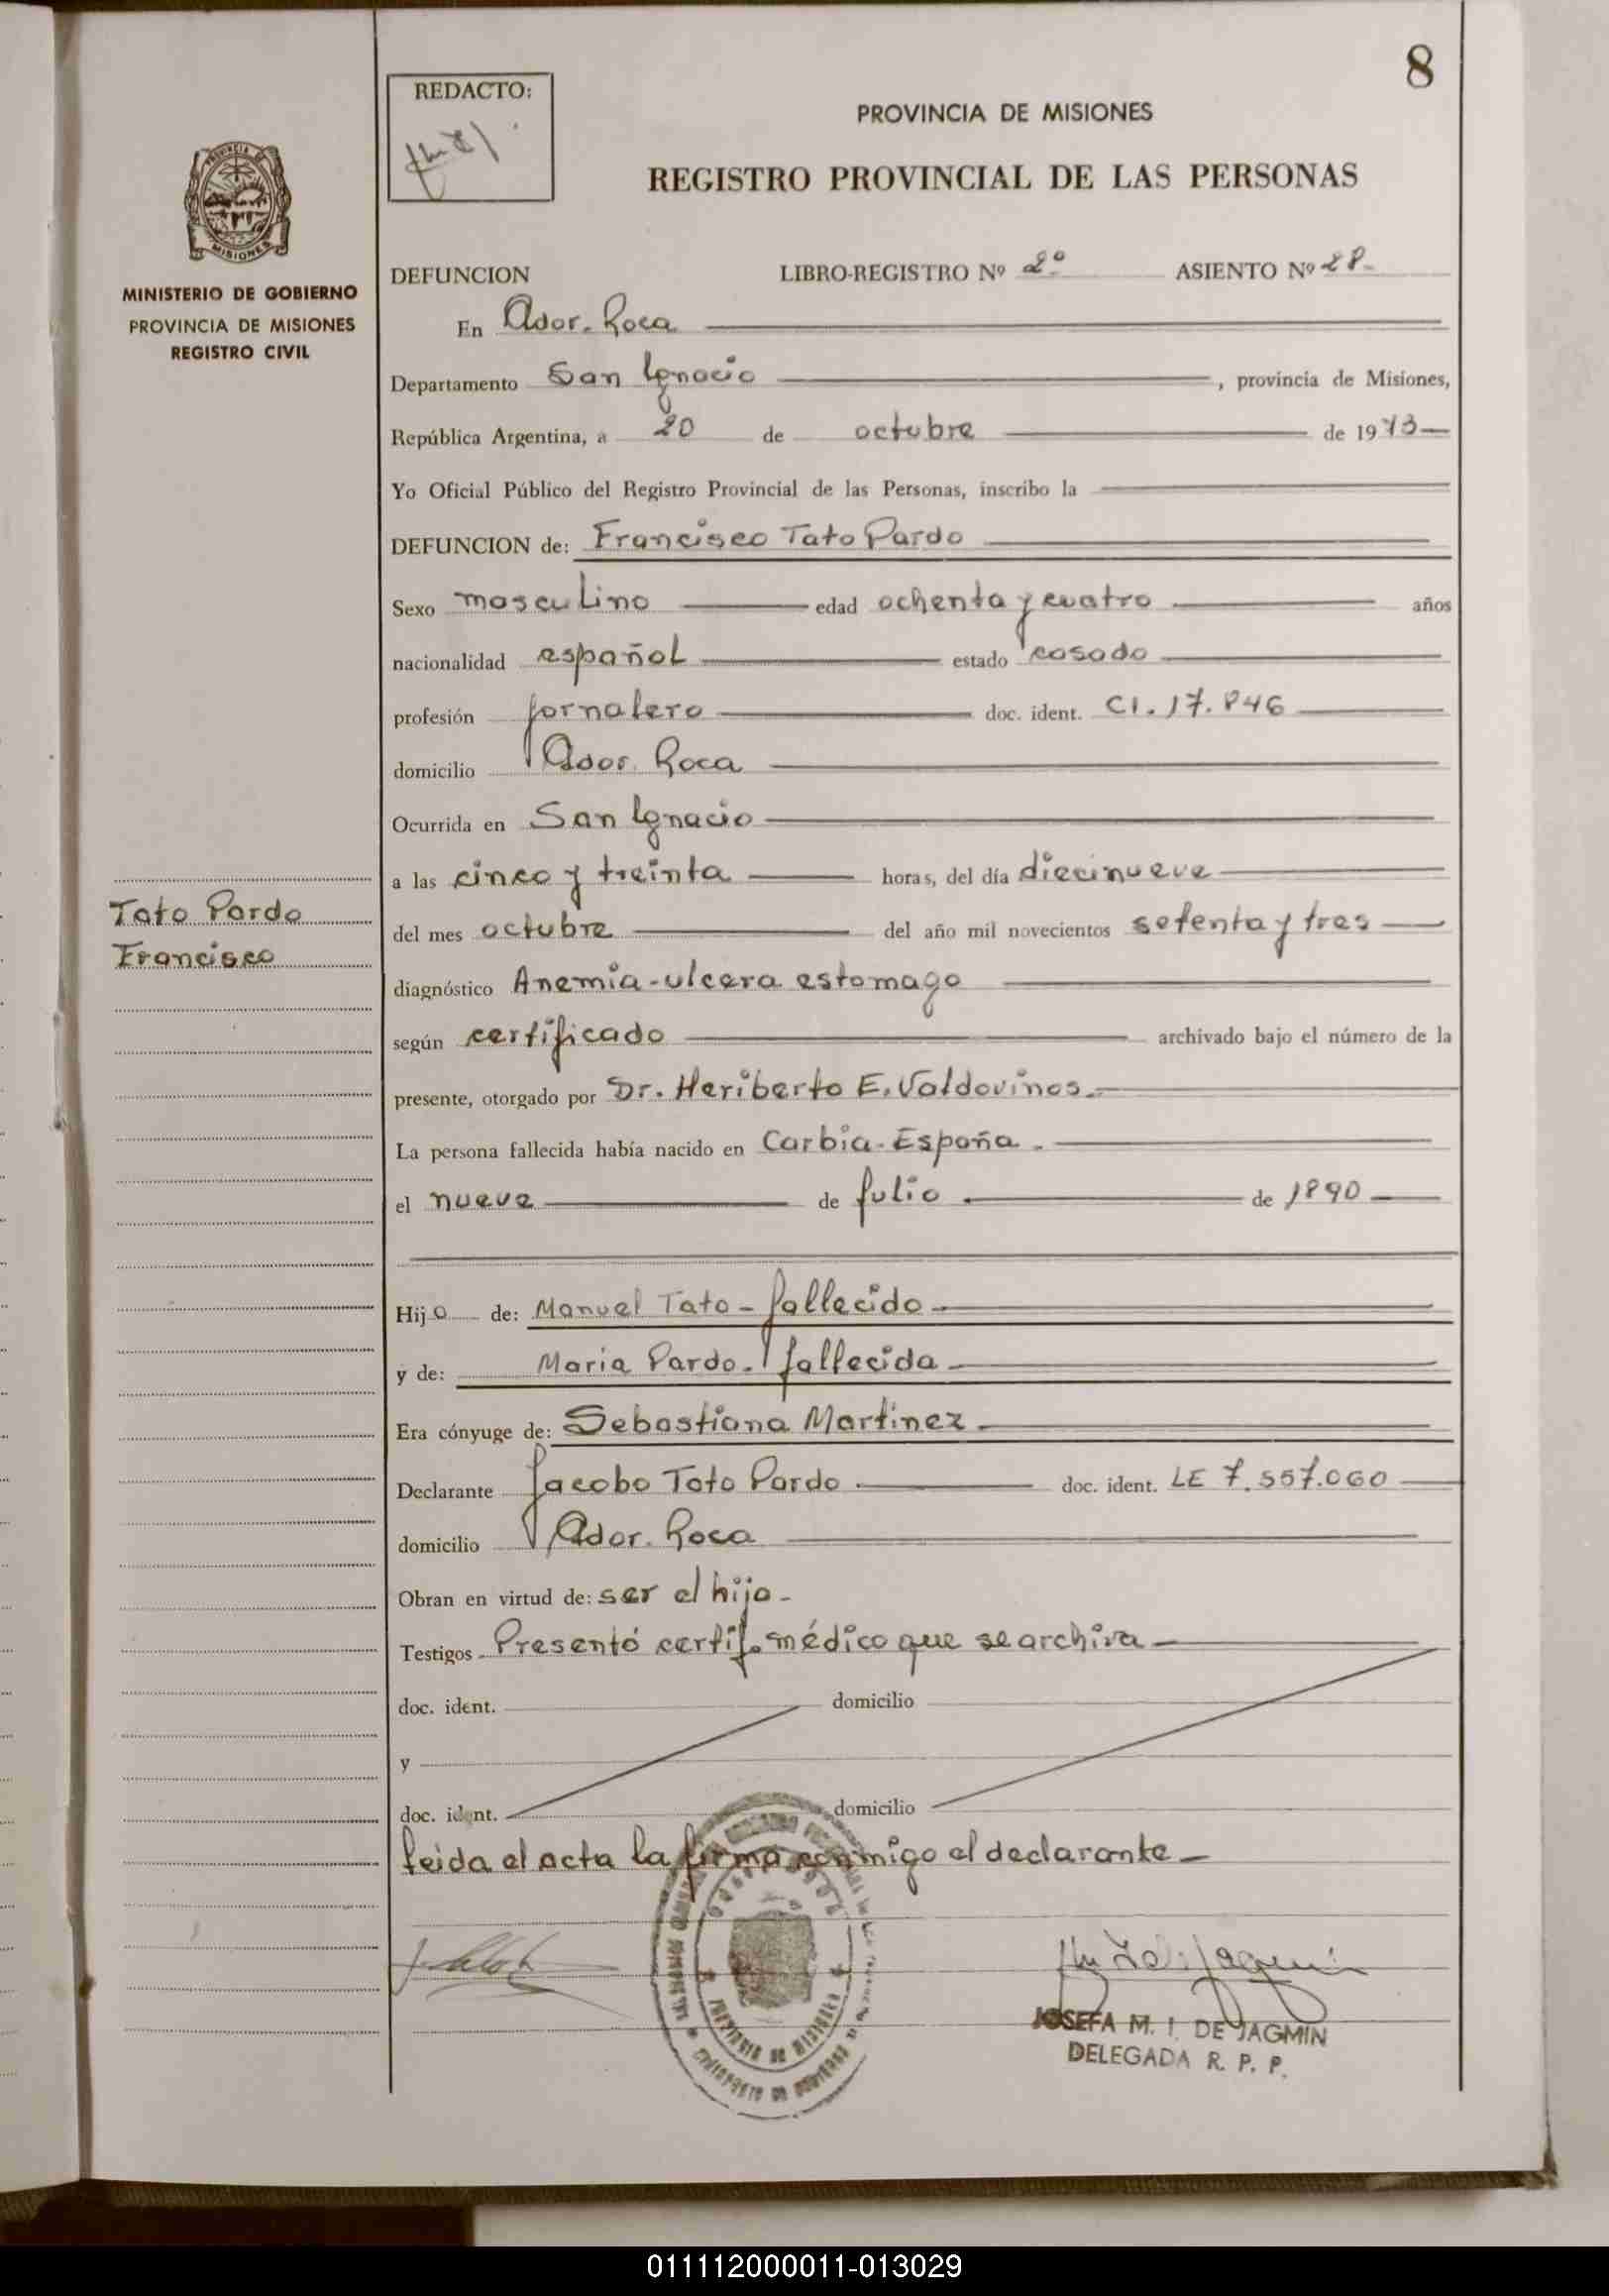 8
REDACTO:
PROVINCIA DE MISIONES
REGISTRO PROVINCIAL DE LAS PERSONAS
MISIONES
MINISTERIO DE GOBIERNO
PROVINCIA DE MISIONES
REGISTRO CIVIL
DEFUNCION LIBRO-REGISTRO Nº 2º ASIENTO Nº 28-
En Ador. Roca
Departamento San Ignacio, provincia de Misiones,
República Argentina, a 20 de octubre de 1973
Yo Oficial Público del Registro Provincial de las Personas, inscribo la
DEFUNCION de: Francisco Tato Pardo
Sexo masculino edad ochenta y cuatro años
nacionalidad español estado casado
profesión jornalero doc. ident. CI. 17.846
domicilio Ador. Roca
Ocurrida en San Ignacio
a las cinco y treinta horas, del día diecinueve
Tato Pardo
Francisco
del mes octubre del año mil novecientos setenta y tres
diagnóstico Anemia-ulcera estomago
según certificado archivado bajo el número de la
presente, otorgado por Dr. Heriberto E. Valdovinos.
La persona fallecida había nacido en Carbia-España.
el nueve de julio de 1890
Hijo de: Manuel Tato-fallecido
y de: Maria Pardo-fallecida
Era cónyuge de: Sebastiana Martinez
Declarante Jacobo Tato Pardo doc. ident. LE 7.557.060
domicilio Ador. Roca
Obran en virtud de: ser el hijo-
Testigos Presentó certif. médico que se archiva
doc. ident. domicilio
y
doc. ident. domicilio
leida el acta la firma conmigo el declarante
PROVINCIA DE MISIONES
JOSEFA M. I. DE JAGMIN
DELEGADA R. P. P.
011112000011-013029